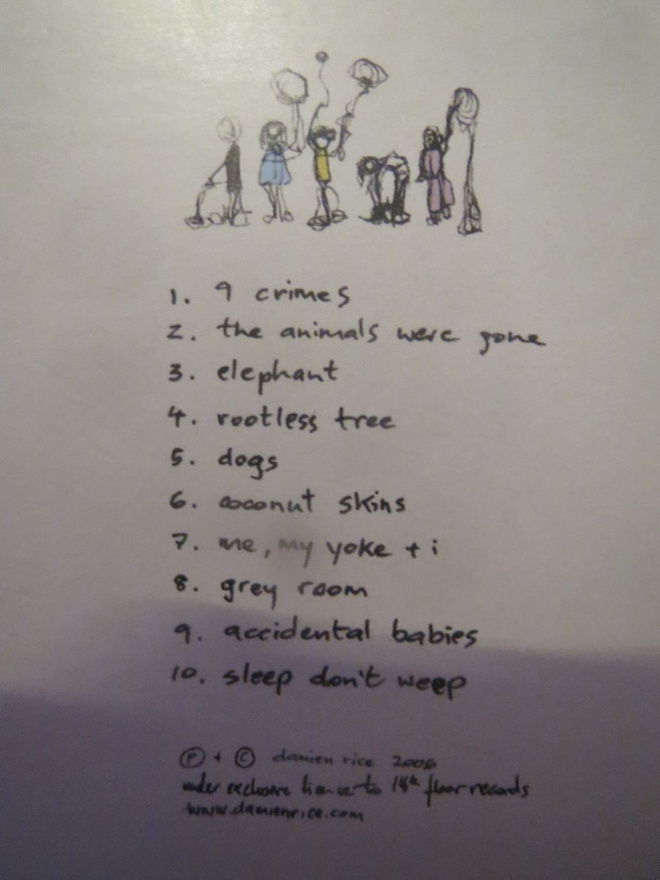 1. 9 crimes
2. the animals were gone
3. elephant
4. rootless tree
5. dogs
6. coconut skins
7. me, my yoke + i
8. grey room
9. accidental babies
10. sleep don't weep
℗ + © damien rice 2006
under exclusive licence to 14th floor records
www.damienrice.com